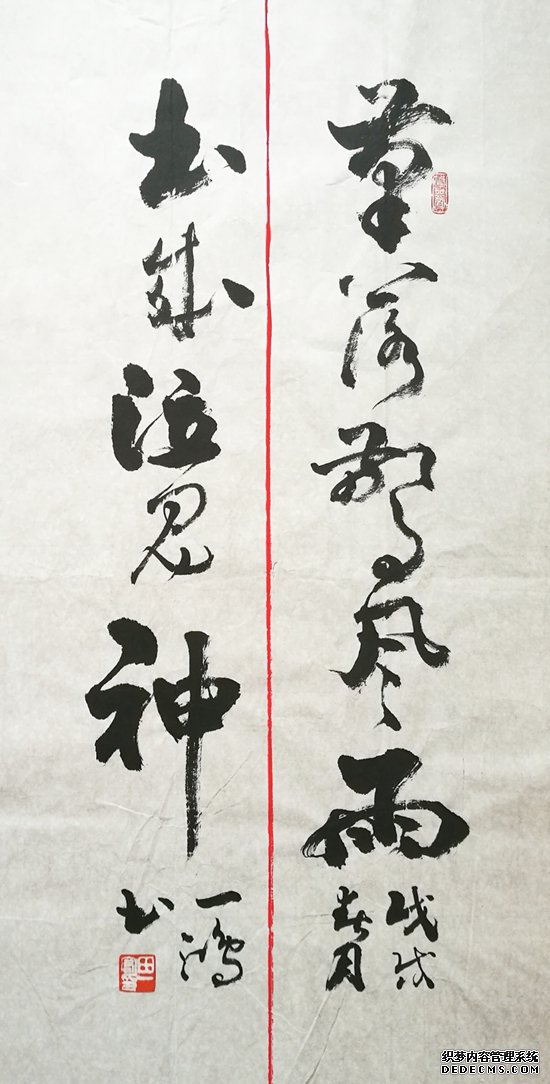 筆落驚風雨
戊戌
春月
书成泣鬼神
一鸿
书
织梦内容管理系统
DEDECMS.COM